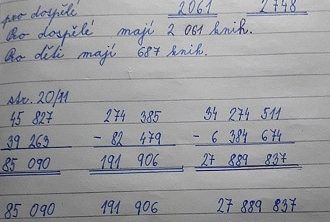 pro dospělé 2061 2748
Pro dospělé mají 2 061 knih.
Pro děti mají 687 knih.
str. 20/11
45 827 274 385 34 274 511
39 263 - 82 479 - 6 384 674
85 090 191 906 27 889 837
85 090 191 906 27 889 837